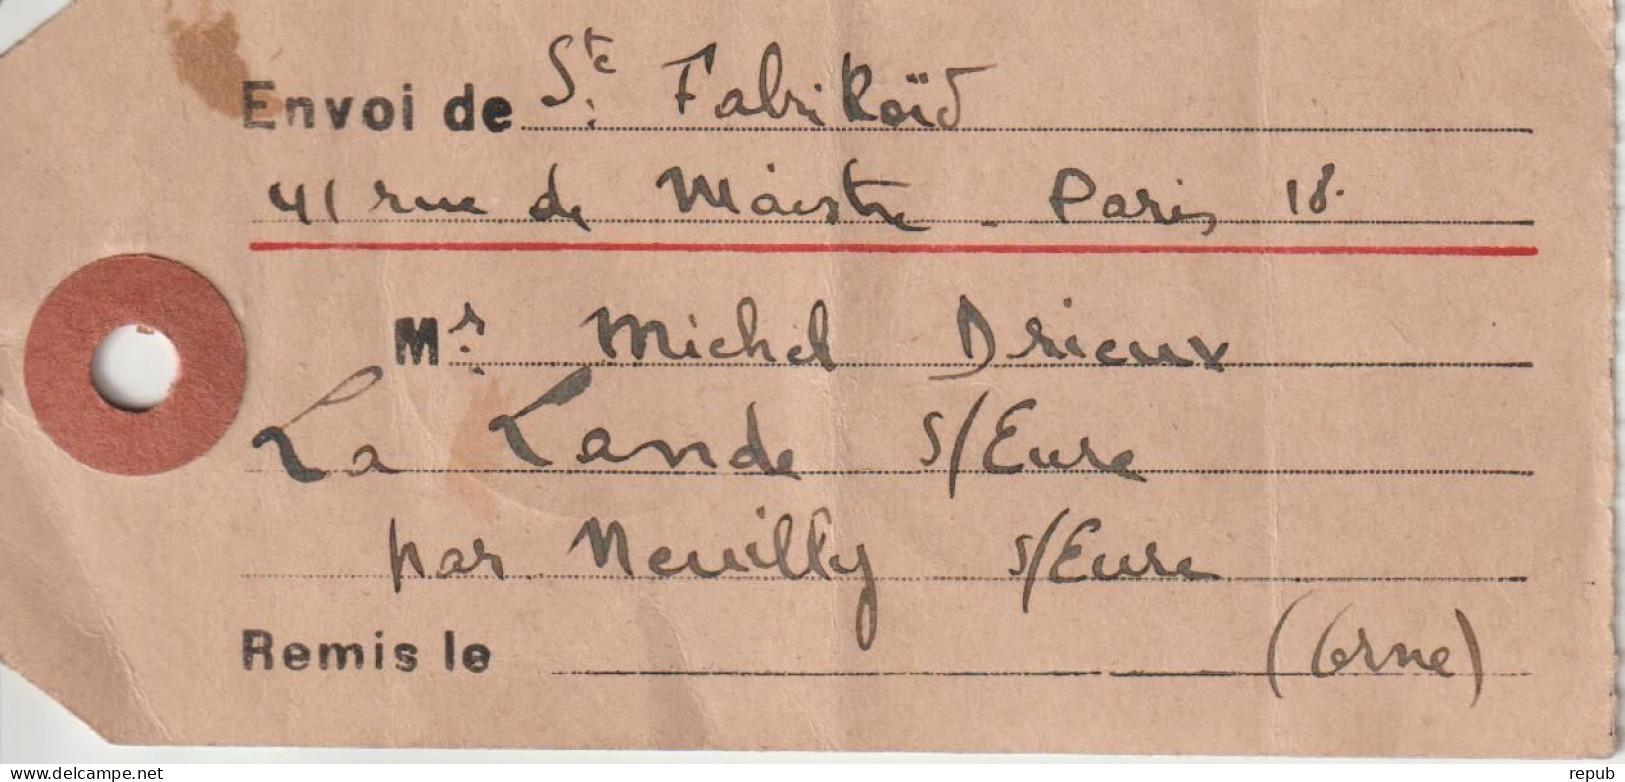 Envoi de Sté Fabrikoïd
41 rue de Maistre - Paris 18.
Mr. Michel Drieux
La Lande s/Eure
par Neuilly s/Eure
Remis le (Orne)
delcampe.net
repub